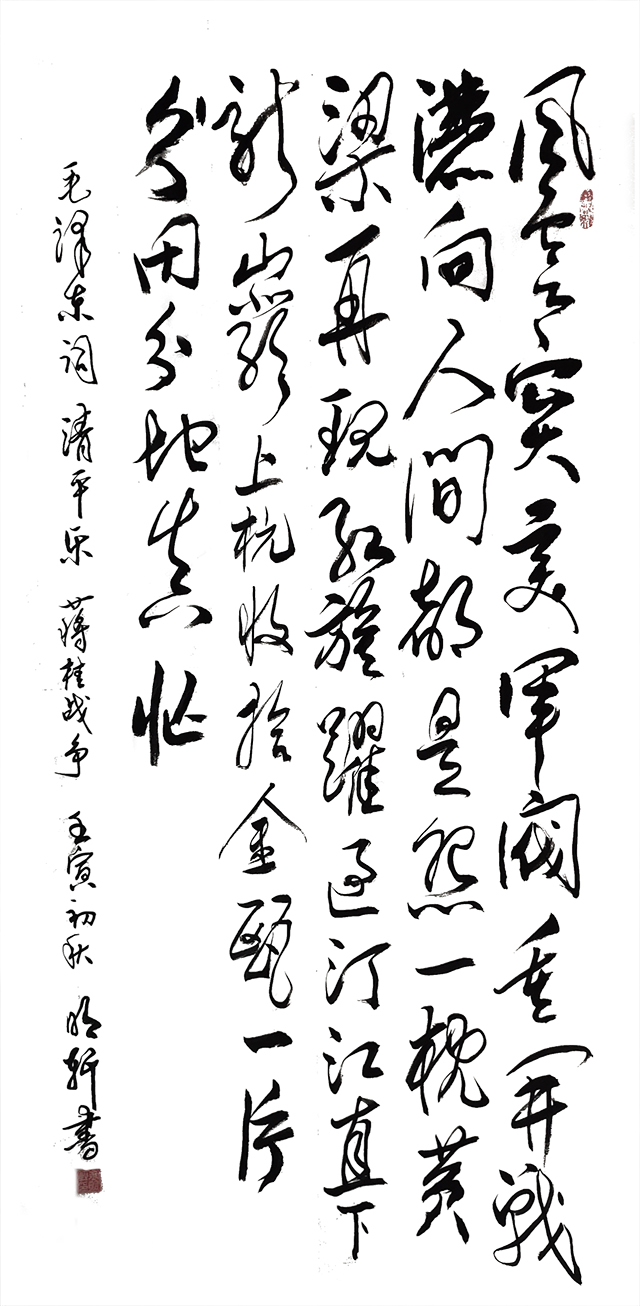 风雲突变軍阀重开戰
灑向人間都是怨一枕黄
粱再现红旗躍过汀江直下
龍巖上杭收拾金甌一片
分田分地真忙
毛泽东词 清平乐 蒋桂战争 壬寅初秋 明轩書